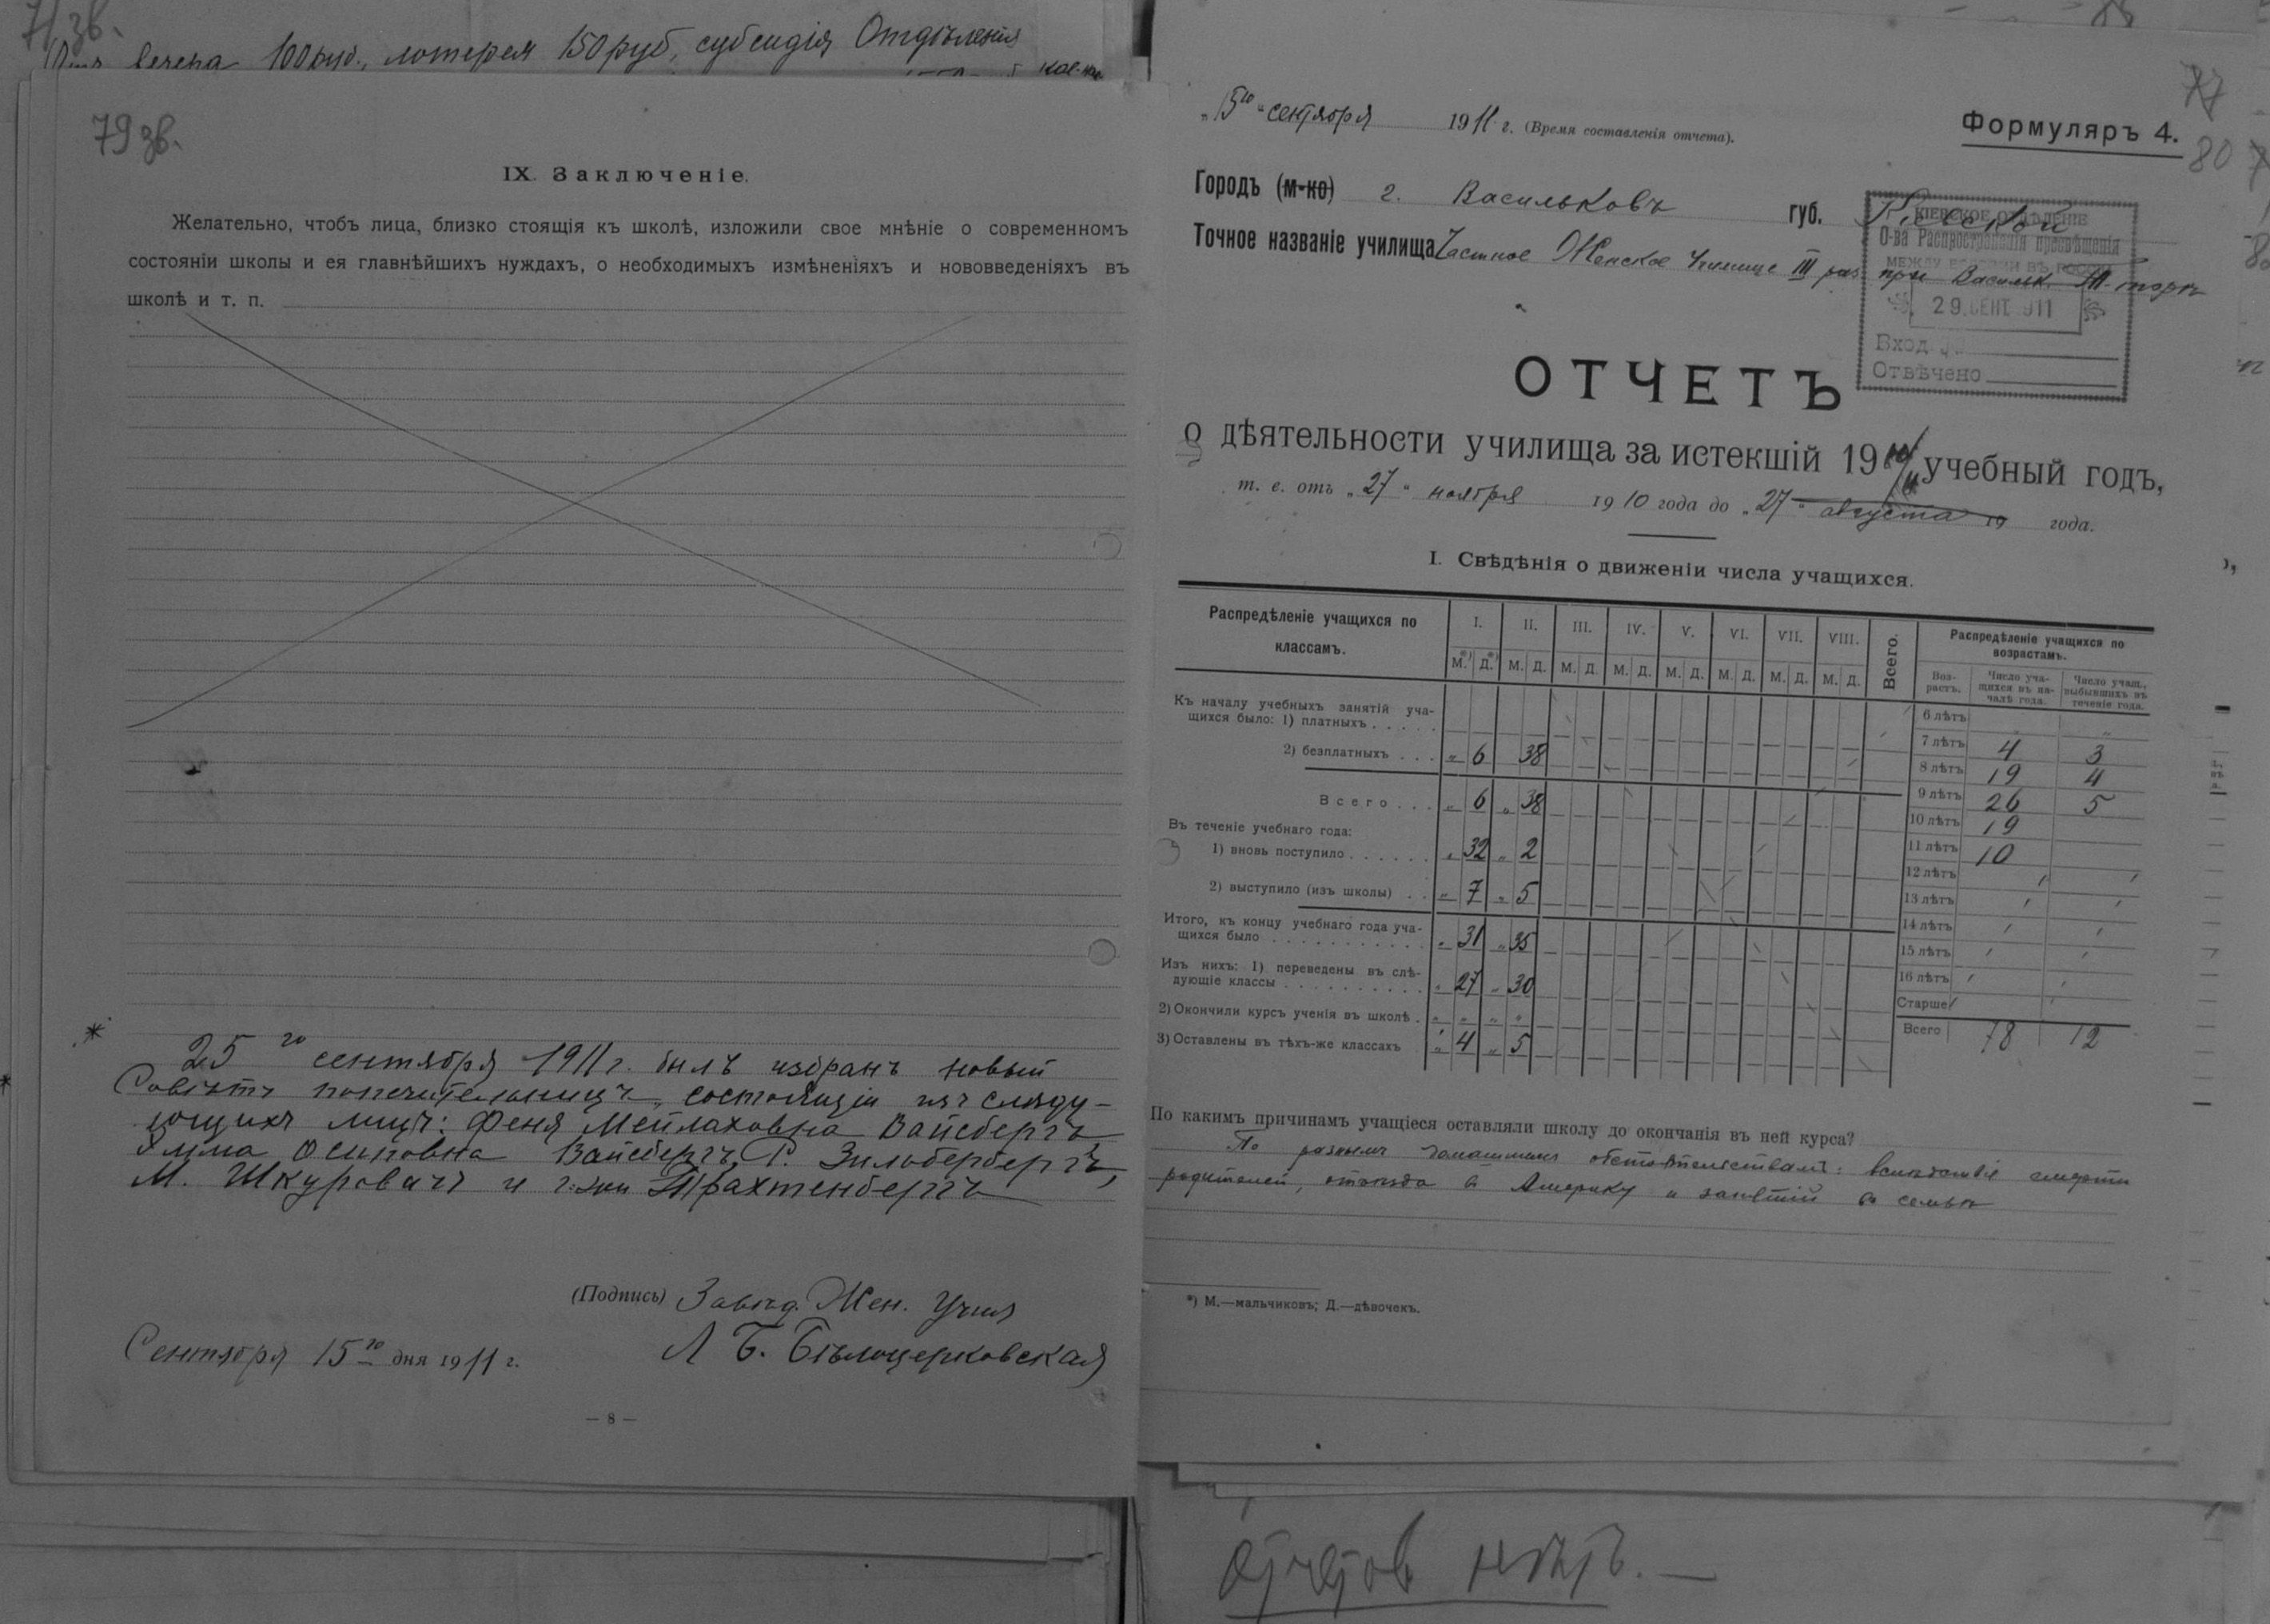 71 зв.
вечера 100 руб., лотерея 150 руб, субсидія Отдѣленія
79 зв.
IX. Заключеніе.
Желательно, чтобъ лица, близко стоящія къ школѣ, изложили свое мнѣніе о современномъ
состояніи школы и ея главнѣйшихъ нуждахъ, о необходимыхъ измѣненіяхъ и нововведеніяхъ въ
школѣ и т. п.
* 25 го сентября 1911 г. былъ избранъ новый
Совѣтъ попечительницъ, состоящій изъ слѣду-
ющихъ лицъ: Феня Мейлаховна Вайсбергъ,
Эмма Осиповна Вайсбергъ, Р. Зильбербергъ,
М. Шкуровичъ и г-жи Трахтенбергъ
(Подпись) Завѣд. Жен. Учил
Л Б. Бѣлоцерковская
Сентября 15 го дня 1911 г.
— 8 —
„15 го“ сентября 1911 г. (Время составленія отчета).
Формуляръ 4.
80
Городъ (м-ко) г. Васильковъ губ. Кіевской
Точное названіе училища Частное Женское Училище III раз. при Васильк. Т.-торѣ
КІЕВСКОЕ ОТДѢЛЕНІЕ
О-ва Распространенія просвѣщенія
МЕЖДУ ЕВРЕЯМИ ВЪ РОССІИ
29 СЕНТ. 911
Вход. №
Отвѣчено
ОТЧЕТЪ
о дѣятельности училища за истекшій 1910/11 учебный годъ,
т. е. отъ „27“ ноября 1910 года до „27“ августа 19 года.
I. Свѣдѣнія о движеніи числа учащихся.
Распредѣленіе учащихся по классамъ. I. II. III. IV. V. VI. VII. VIII. Всего.
М.*) Д.*) М. Д. М. Д. М. Д. М. Д. М. Д. М. Д. М. Д.
Къ началу учебныхъ занятій уча-
щихся было: 1) платныхъ . . . . .
2) безплатныхъ . . . „ 6 38
Всего . . . „ 6 „ 38
Въ теченіе учебнаго года:
1) вновь поступило . . . . . . „ 32 „ 2
2) выступило (изъ школы) . . „ 7 „ 5
Итого, къ концу учебнаго года уча-
щихся было . . . . . . . . . . . „ 31 „ 35
Изъ нихъ: 1) переведены въ слѣ-
дующіе классы . . . . . . . . . . „ 27 „ 30
2) Окончили курсъ ученія въ школѣ . „ „ „ „
3) Оставлены въ тѣхъ-же классахъ „ 4 „ 5
Распредѣленіе учащихся по
возрастамъ.
Воз-
растъ.
Число уча-
щихся въ на-
чалѣ года.
Число учащ.,
выбывшихъ въ
теченіе года.
6 лѣтъ „ „
7 лѣтъ 4 3
8 лѣтъ 19 4
9 лѣтъ 26 5
10 лѣтъ 19
11 лѣтъ 10
12 лѣтъ
13 лѣтъ
14 лѣтъ
15 лѣтъ
16 лѣтъ
Старше
Всего 78 12
По какимъ причинамъ учащіеся оставляли школу до окончанія въ ней курса?
По разнымъ домашнимъ обстоятельствамъ: вслѣдствіе смерти
родителей, отъѣзда въ Америку и занятій въ семьѣ
*) М.—мальчиковъ; Д.—дѣвочекъ.
отчетов нѣтъ. —